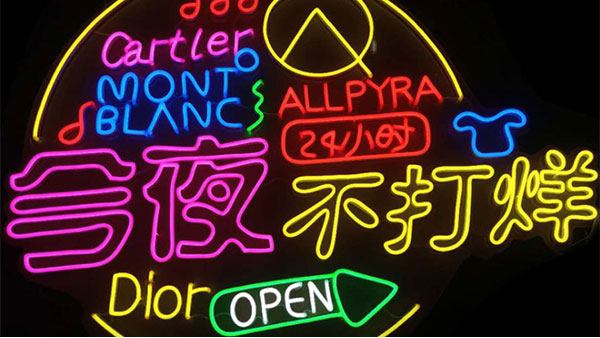 Cartier
MONT
BLANC
ALLPYRA
24小时
今夜不打烊
Dior
OPEN